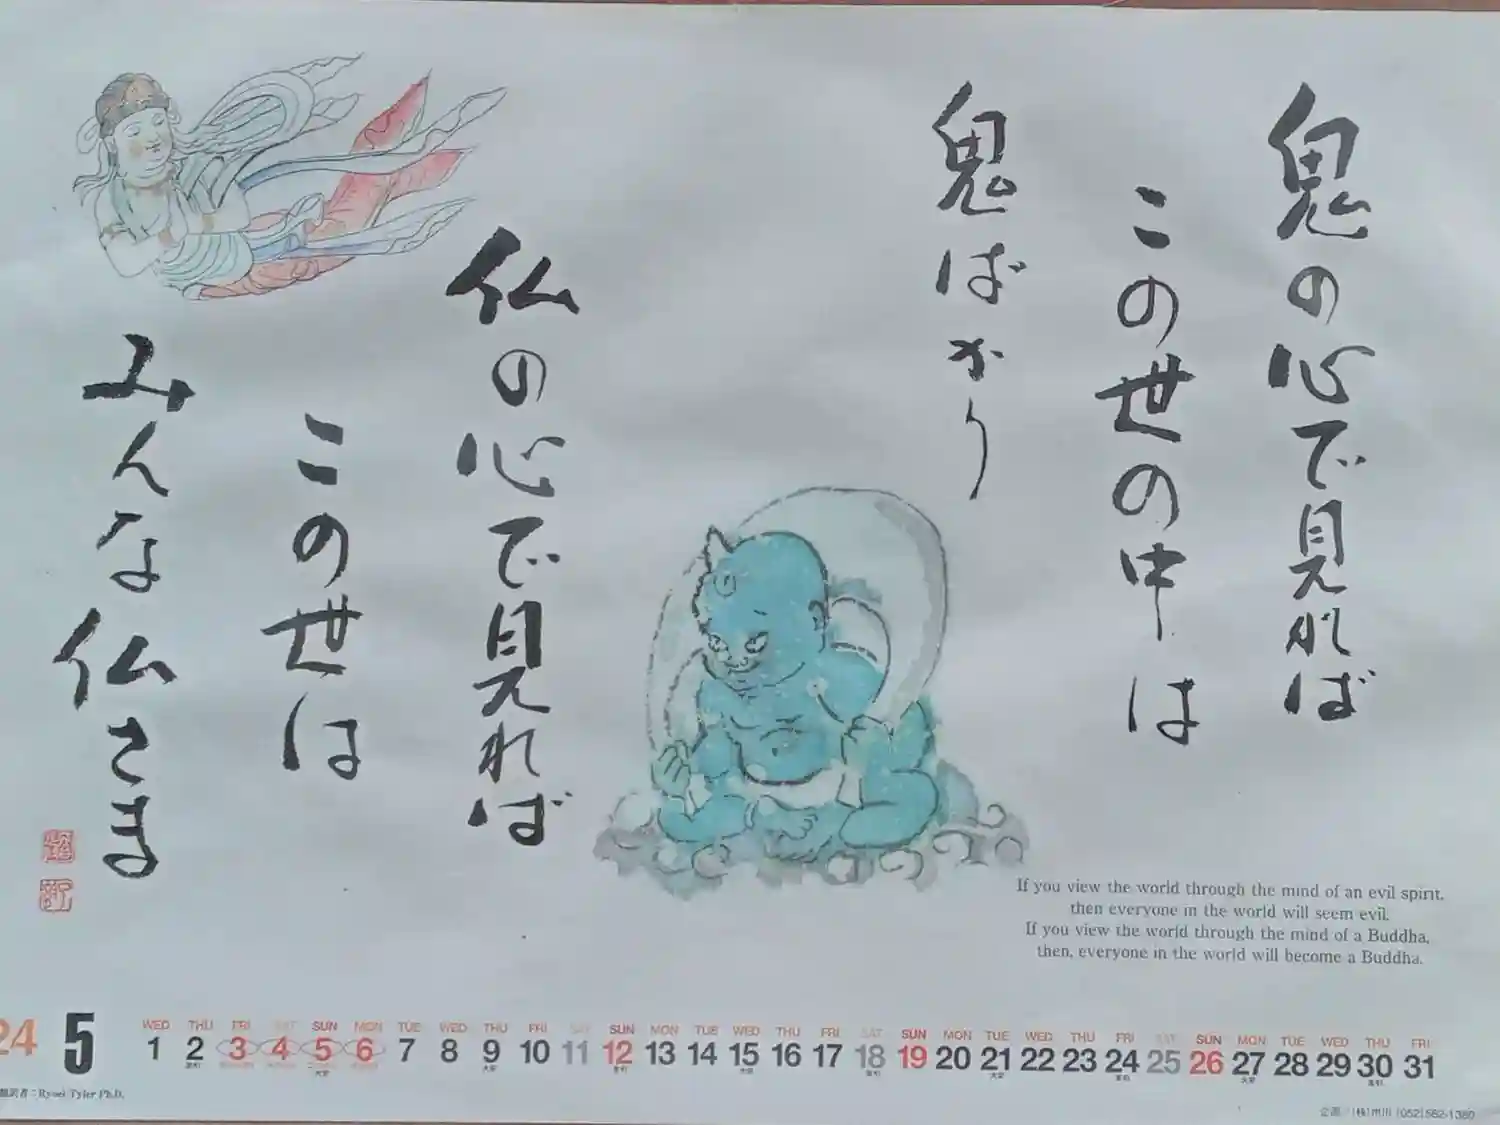 鬼の心で見れば
この世の中は
鬼ばかり
仏の心で見れば
この世は
みんな仏さま
If you view the world through the mind of an evil spirit,
then everyone in the world will seem evil.
If you view the world through the mind of a Buddha,
then, everyone in the world will become a Buddha.
24 5
WED THU FRI SAT SUN MON TUE WED THU FRI SAT SUN MON TUE WED THU FRI SAT SUN MON TUE WED THU FRI SAT SUN MON TUE WED THU FRI
1 2 3 4 5 6 7 8 9 10 11 12 13 14 15 16 17 18 19 20 21 22 23 24 25 26 27 28 29 30 31
翻訳者:Ryoei Tyler Ph.D.
企画/(株)市川 (052)582-1380